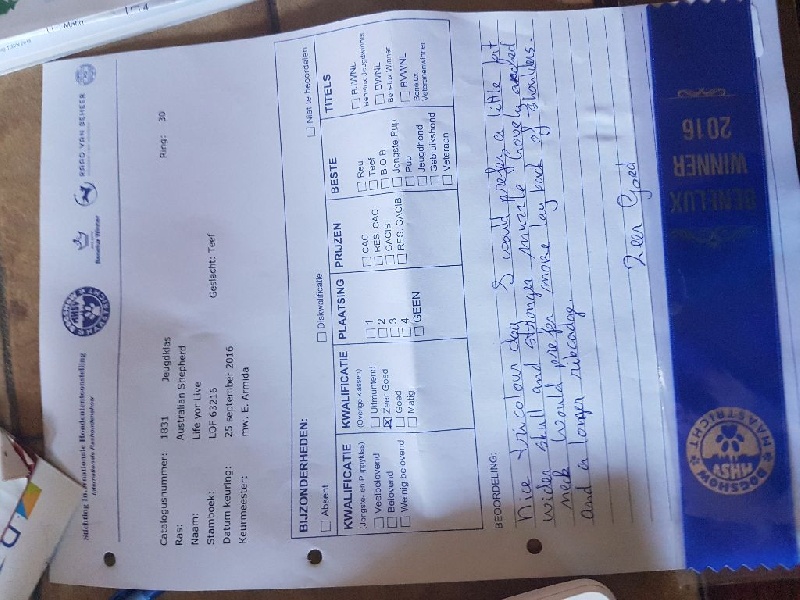 Stichting Internationale Hondententoonstelling
Benelux Winner
RAAD VAN BEHEER
Catalogusnummer: 1831 Jeugdklas Ring: 30
Ras: Australian Shepherd
Naam: Life vor Live Geslacht: Teef
Stamboek: LOF 63215
Datum keuring: 25 september 2016
Keurmeester: mw. E. Armida
BIJZONDERHEDEN:
Absent Diskwalificatie Niet te beoordelen
KWALIFICATIE KWALIFICATIE PLAATSING PRIJZEN BESTE TITELS
(Jongste- en Puppyklas) (Overige klassen)
Veelbelovend
Belovend
Weinig belovend
Uitmuntend
Zeer Goed
Goed
Matig
1
2
3
4
GEEN
CAC
RES. CAC
CACIB
RES. CACIB
Reu
Teef
B.O.B
Jongste Pup
Pup
Jeugdhond
Gebruikshond
Veteraan
BJWNL
Benelux Jeugdwinner
BWNL
Benelux Winner
BVWNL
Benelux
Veteranenwinner
BEOORDELING:
Nice tricolour I would prefer a little bit
wider skull and stronger muzzle lovely arched
neck would prefer more lay back of shoulders.
and a longer
Zeer Goed
BENELUX
WINNER
2016
DOGSHOW
MAASTRICHT